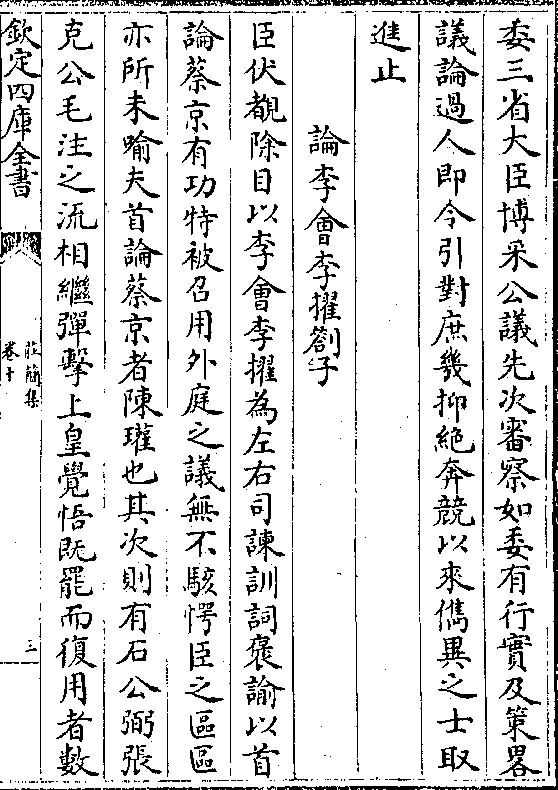 委三省大臣博采公議先次審察如委有行實及策畧
議論過人即令引對庶幾抑絶奔競以來儁異之士取
進止
論李㑹李擢劄子
臣伏覩除目以李㑹李擢為左右司諫訓詞褒諭以首
論蔡京有功特被召用外庭之議無不駭愕臣之區區
亦所未喻夫首論蔡京者陳瓘也其次則有石公弼張
克公毛注之流相繼彈擊上皇覺悟既罷而復用者數
欽定四庫全書
莊簡集
卷十
三